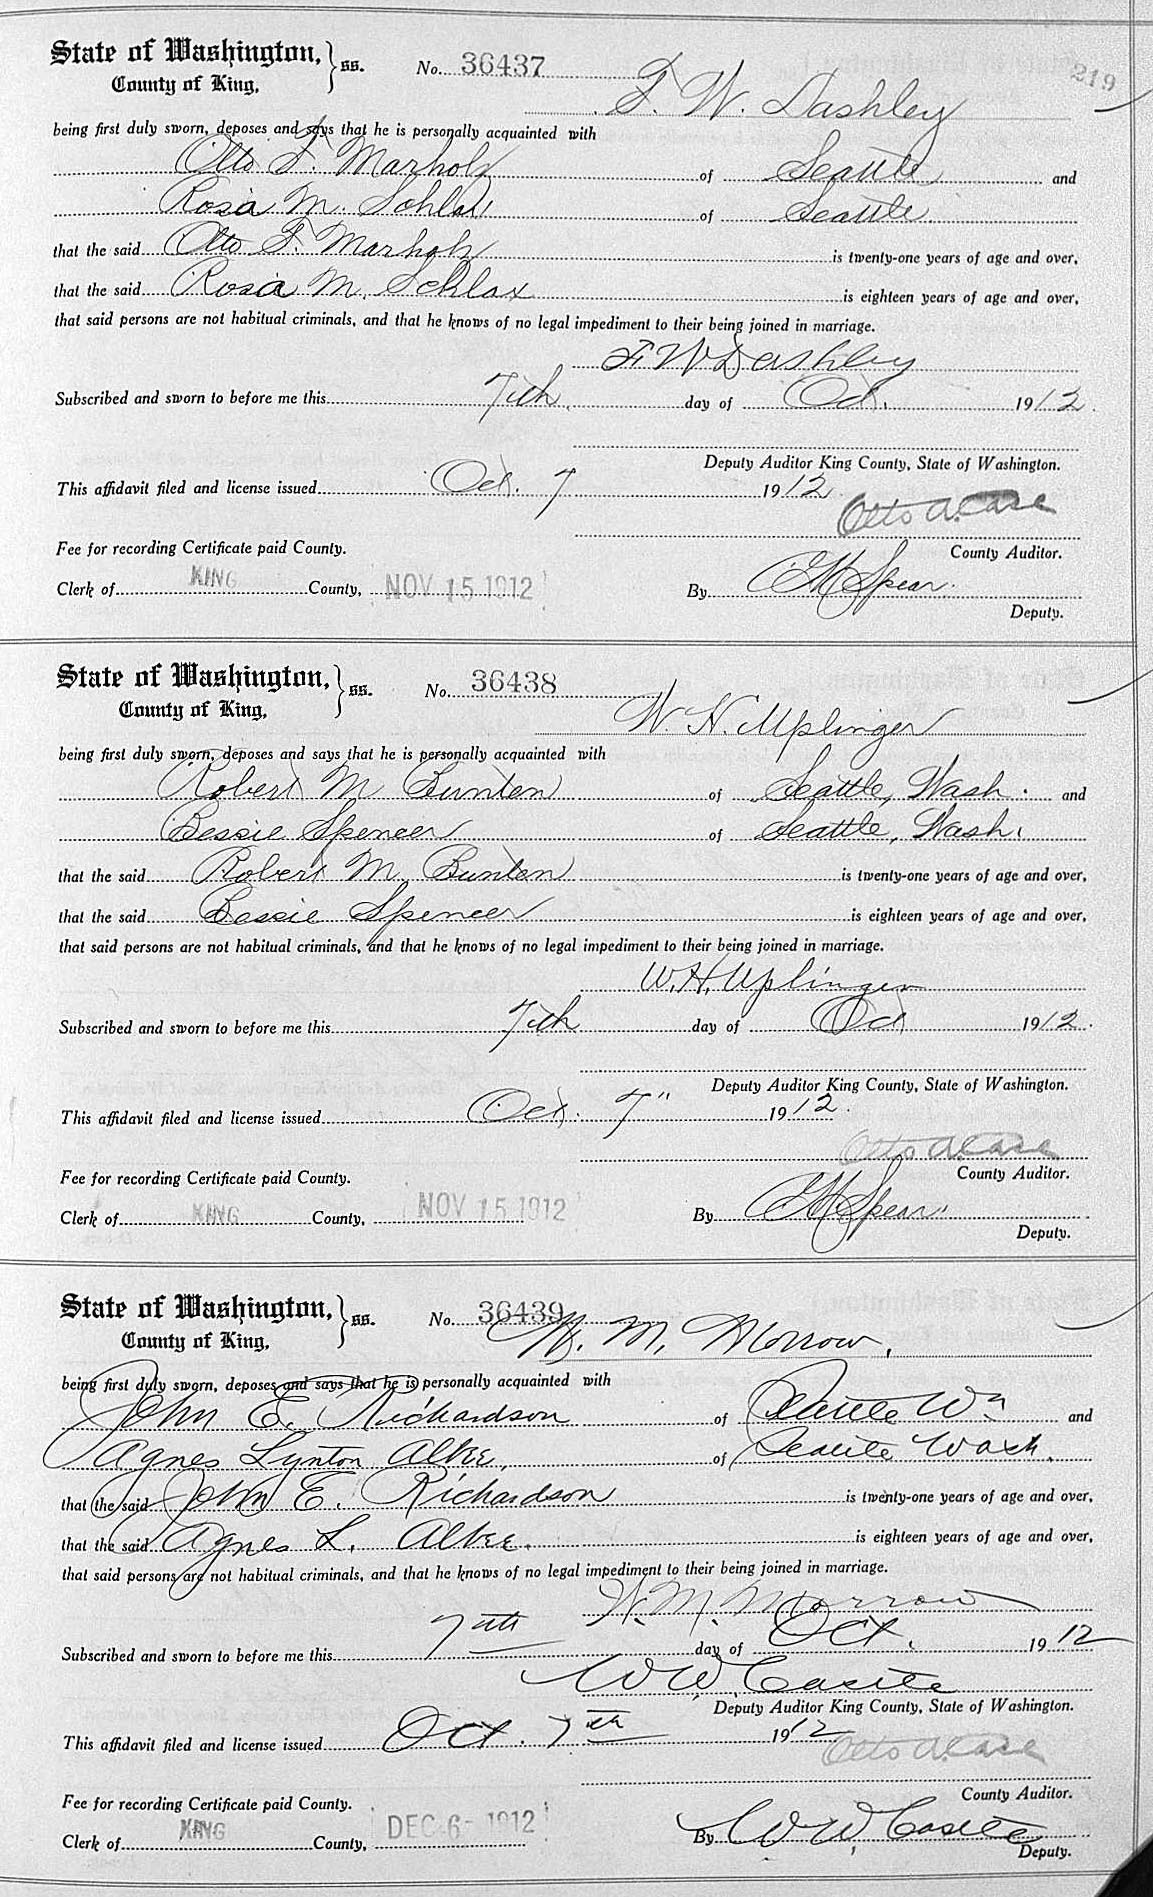 219
State of Washington, } ss. No. 36437
County of King,
F. W. Dashley
being first duly sworn, deposes and says that he is personally acquainted with
Otto F. Marholz of Seattle and
Rosa M. Schlax of Seattle
that the said Otto F. Marholz is twenty-one years of age and over,
that the said Rosa M. Schlax is eighteen years of age and over,
that said persons are not habitual criminals, and that he knows of no legal impediment to their being joined in marriage.
F W Dashley
Subscribed and sworn to before me this 7th day of Oct. 1912.
Deputy Auditor King County, State of Washington.
This affidavit filed and license issued Oct. 7 1912.
Otto A. Case
Fee for recording Certificate paid County. County Auditor.
Clerk of KING County, NOV 15 1912 By Spear.
Deputy.
State of Washington, } ss. No. 36438
County of King,
W. H. Uplinger
being first duly sworn, deposes and says that he is personally acquainted with
Robert M Bunten of Seattle, Wash. and
Bessie Spencer of Seattle, Wash.
that the said Robert M. Bunten is twenty-one years of age and over,
that the said Bessie Spencer is eighteen years of age and over,
that said persons are not habitual criminals, and that he knows of no legal impediment to their being joined in marriage.
W. H. Uplinger
Subscribed and sworn to before me this 7th day of Oct 1912.
Deputy Auditor King County, State of Washington.
This affidavit filed and license issued Oct. 7" 1912.
Otto A. Case
Fee for recording Certificate paid County. County Auditor.
Clerk of KING County, NOV 15 1912 By Spear.
Deputy.
State of Washington, } ss. No. 36439
County of King,
W. M. Morrow.
being first duly sworn, deposes and says that he is personally acquainted with
John E. Richardson of Seattle Wn and
Agnes Lynton of Seattle Wash.
that the said John E. Richardson is twenty-one years of age and over,
that the said Agnes L. is eighteen years of age and over,
that said persons are not habitual criminals, and that he knows of no legal impediment to their being joined in marriage.
W. M. Morrow
Subscribed and sworn to before me this 7th day of Oct. 1912
W. W.
Deputy Auditor King County, State of Washington.
This affidavit filed and license issued Oct. 7th 1912
Otto A. Case
Fee for recording Certificate paid County. County Auditor.
Clerk of KING County, DEC 6- 1912 By W. W.
Deputy.